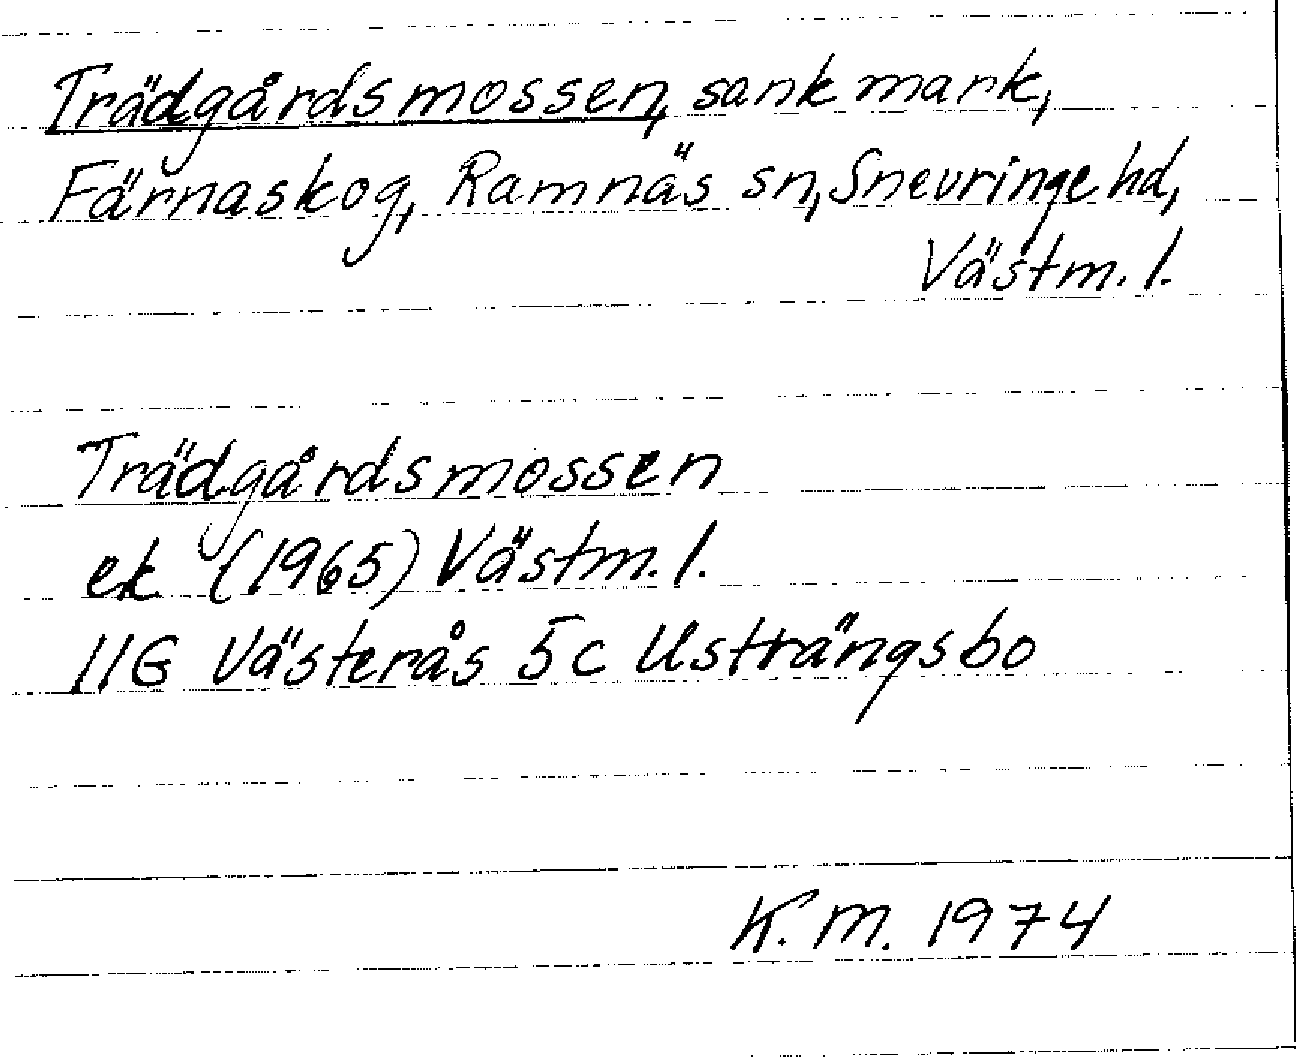 Trädgårdsmossen, sank mark,
Färnaskog, Ramnäs sn, Snevringe hd,
Västm. l.
Trädgårdsmossen
ek (1965) Västm. l.
11G Västerås 5c Usträngsbo
K. M. 1974